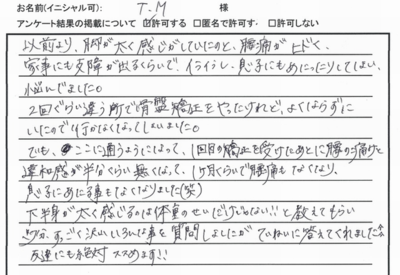 お名前(イニシャル可): T.M 様
アンケート結果の掲載について ☑許可する □匿名で許可す. □許可しない
以前より、脚が太く感じがしていたのと、腰痛がヒドく、
家事にも支障が出るくらいで、イライラし、息子にもあたったりしてしまい、
悩んでました。
2回ぐらい違う所で骨盤矯正をやったけれど、よくならずに
いたので行かなくなってしまいました。
でも、ここに通うようになって、1回目の矯正を受けたあとに腰の痛みと
違和感が半分くらい無くなって、1ヶ月くらいで腰痛もなくなり、
息子にあたる事もなくなりました(笑)
下半身が太く感じるのは体重のせいだけじゃない!!と教えてもらい
すっごく沢山いろんな事を質問しましたがていねいに答えてくれました
友達にも絶対ススめます!!